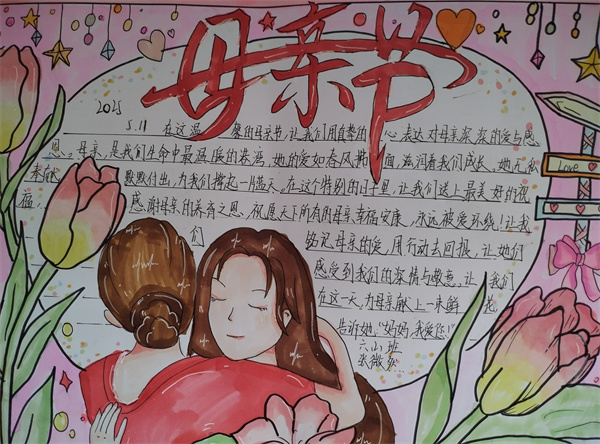 母亲节
2025
5.11 在这温馨的母亲节,让我们用真挚的心,表达对母亲深深的爱与感
恩。母亲,是我们生命中最温暖的港湾,她的爱如春风拂面,滋润着我们成长。她无私
奉献,默默付出,为我们撑起一片蓝天。在这个特别的日子里,让我们送上最美好的祝
福,感谢母亲的养育之恩,祝愿天下所有的母亲幸福安康,永远被爱环绕!让我
们铭记母亲的爱,用行动去回报,让她们
感受到我们的深情与敬意,让我们
在这一天,为母亲献上一束鲜花
告诉她,“妈妈,我爱您!”
六山班
张微
Love